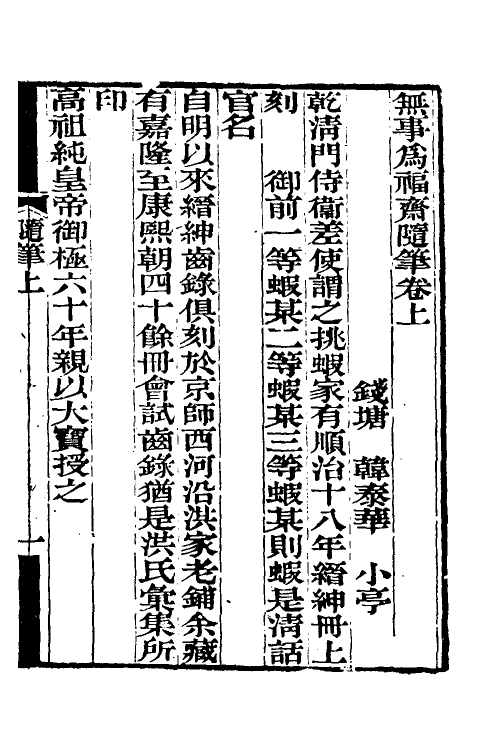 無事爲福齋隨筆卷上
錢塘 韓泰華 小亭
乾淸門侍衞差使謂之挑蝦家有順治十八年縉紳冊上
刻 御前一等蝦某二等蝦某三等蝦某則蝦是淸話
官名
自明以來縉紳齒錄俱刻於京師西河沿洪家老鋪余藏
有嘉隆至康熙朝四十餘冊會試齒錄猶是洪氏彙集所
印
高祖純皇帝御極六十年親以大寶授之
隨筆上
一